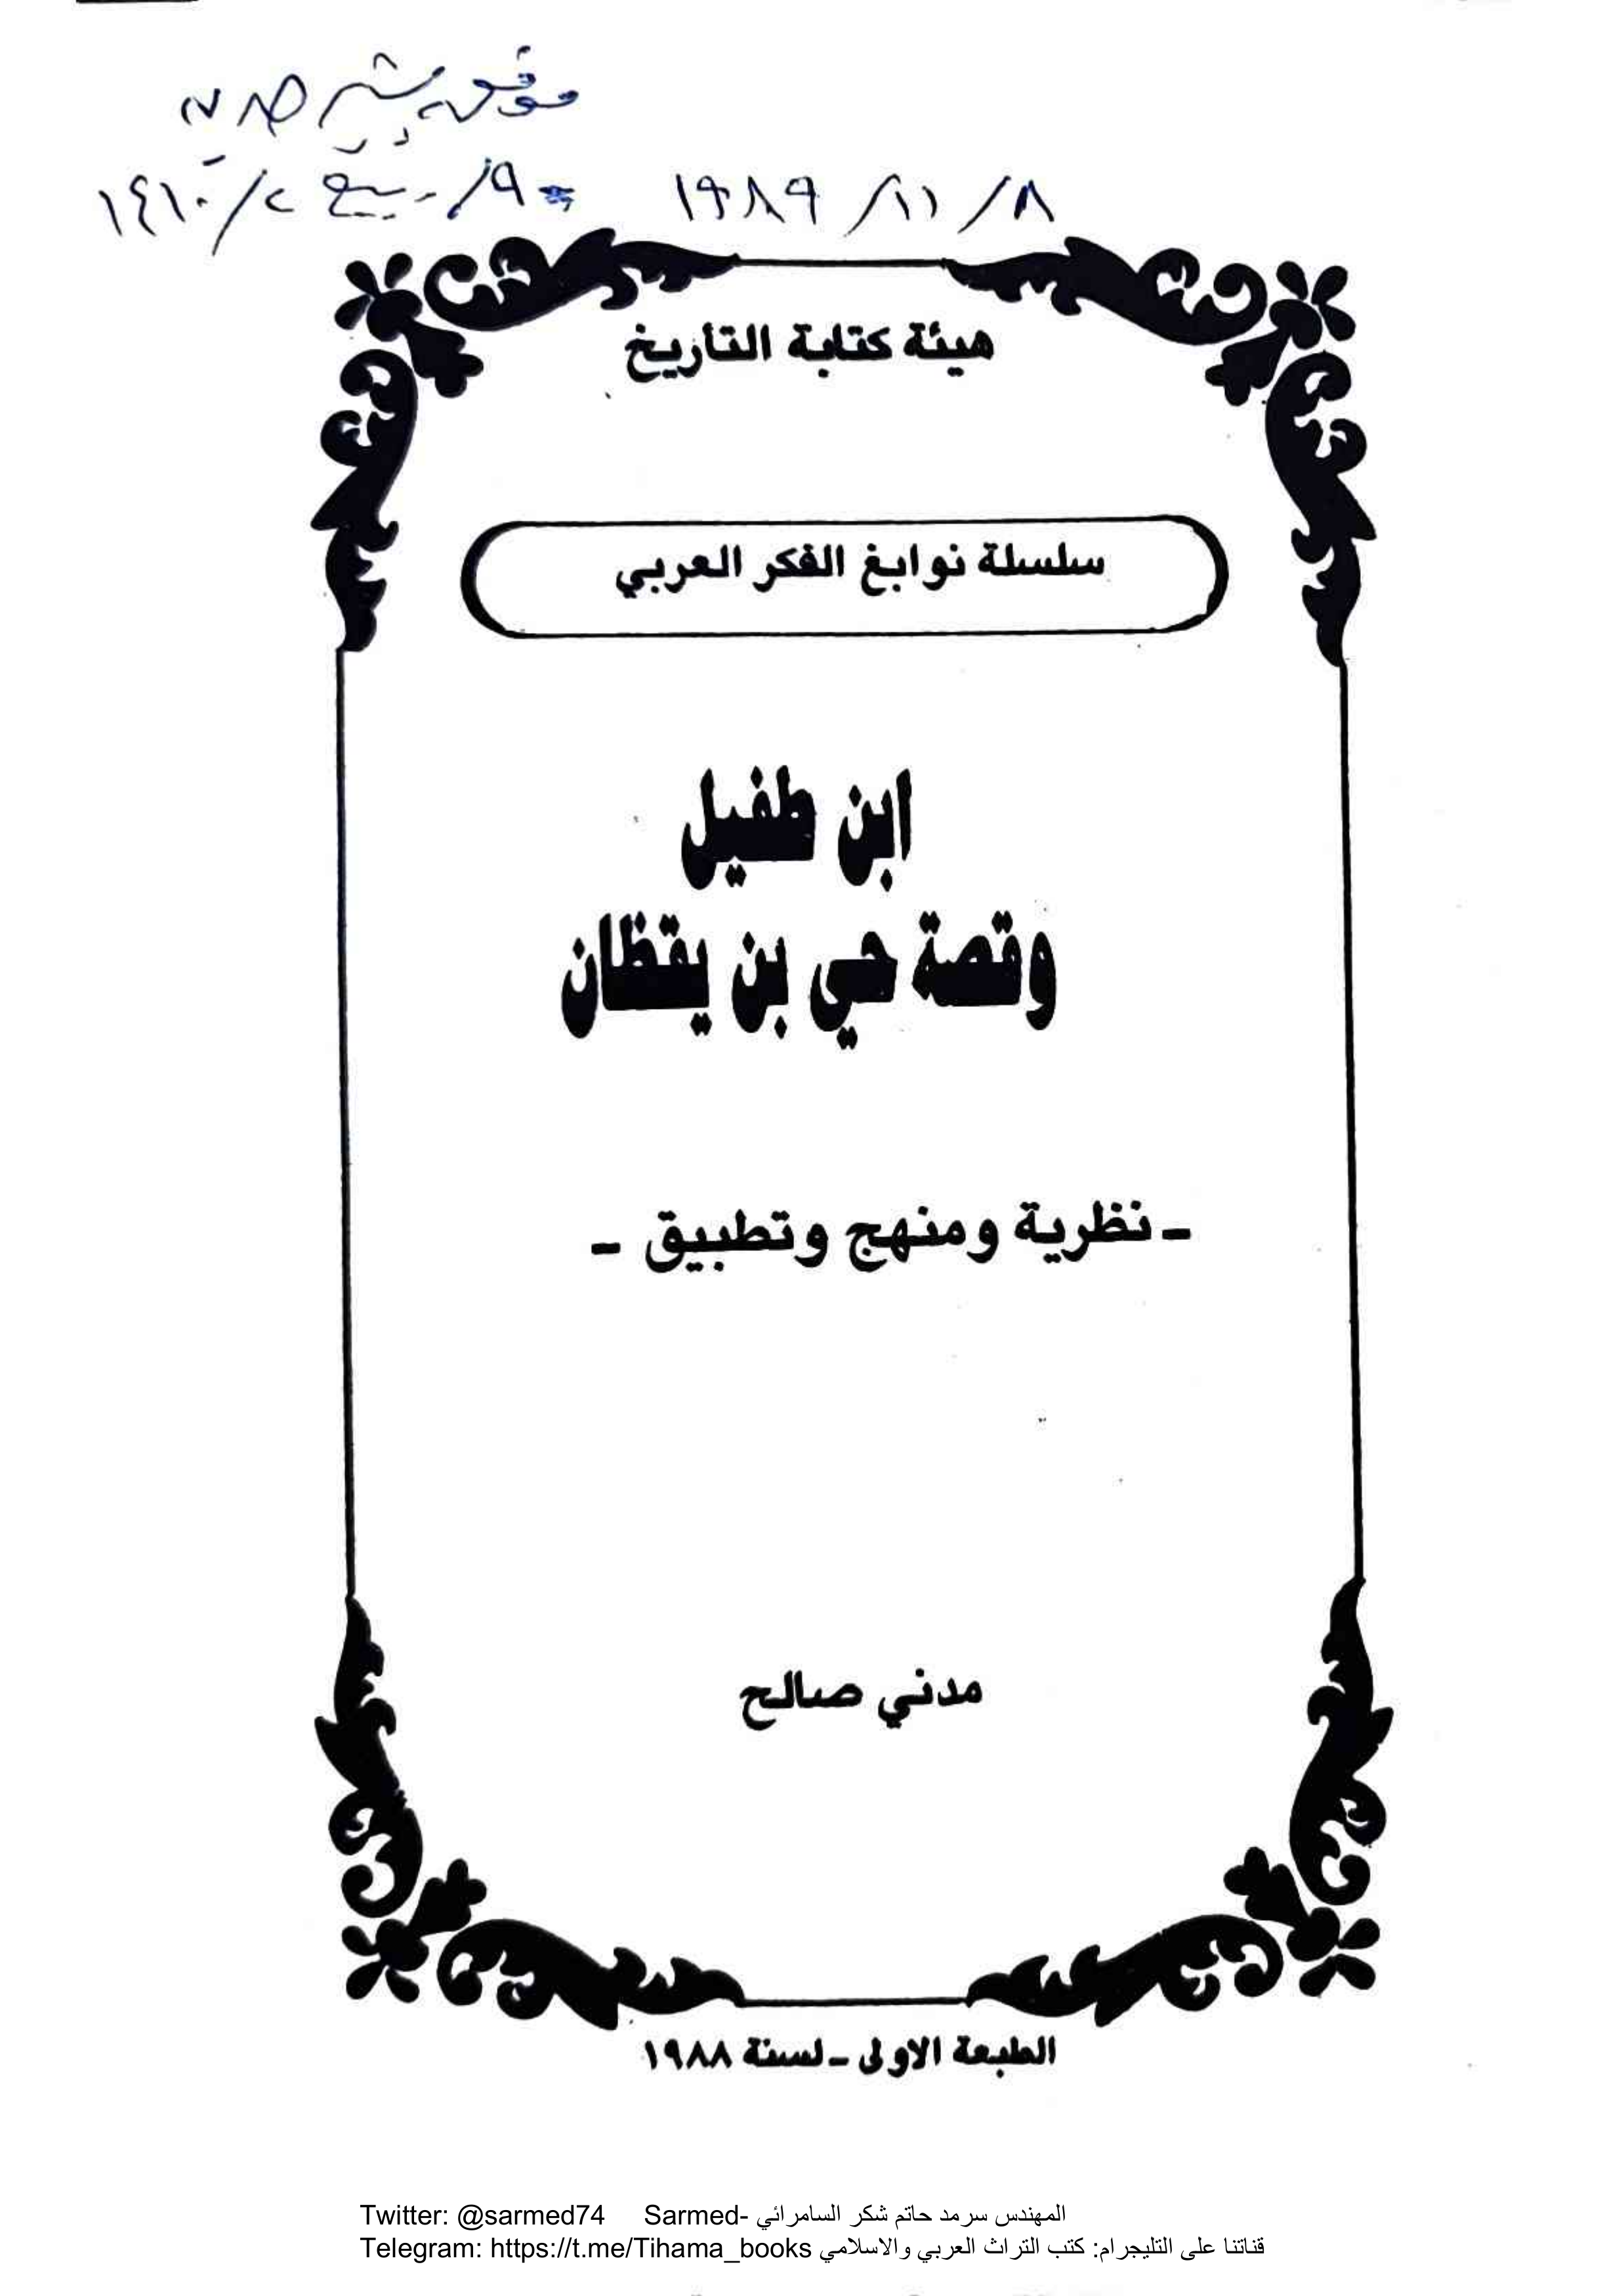 ٨/١١/١٩٨٩ = ٩/ربيع ٢/١٤١٠
هيئة كتابة التأريخ
سلسلة نوابغ الفكر العربي
ابن طفيل
وقصة حي بن يقظان
ـ نظرية ومنهج وتطبيق ـ
مدني صالح
الطبعة الاولى ـ لسنة ١٩٨٨
Twitter: @sarmed74 Sarmed- المهندس سرمد حاتم شكر السامرائي
Telegram: https://t.me/Tihama_books قناتنا على التليجرام: كتب التراث العربي والاسلامي